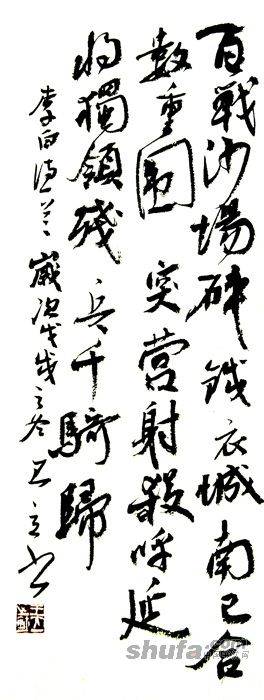 百戰沙場碎鐵衣城南已合
數重圍突營射殺呼延
将獨領殘兵千騎歸
李白詩 歲次戊戌之冬 立书
shufa